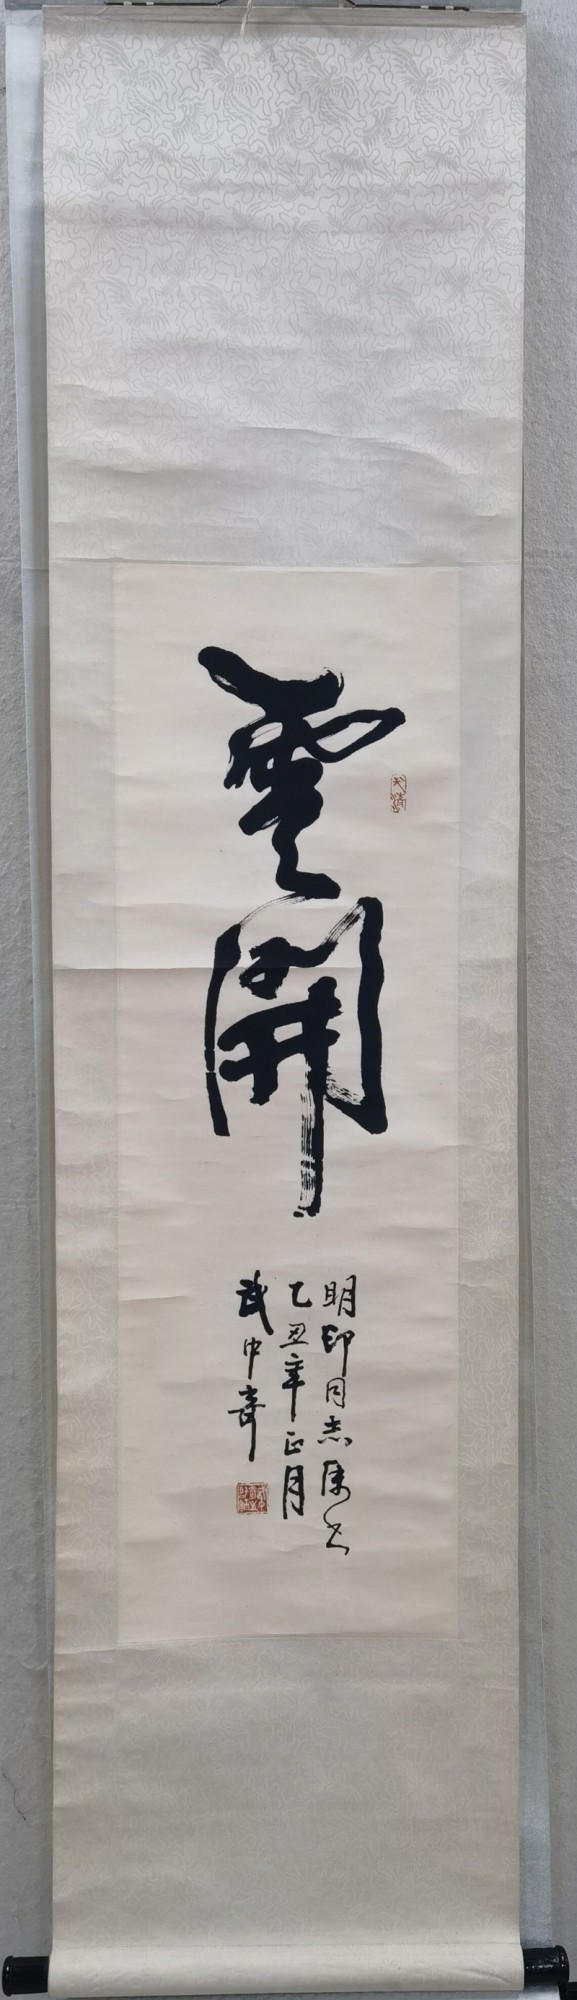 雲開
明印同志属书
乙丑年正月
武中奇